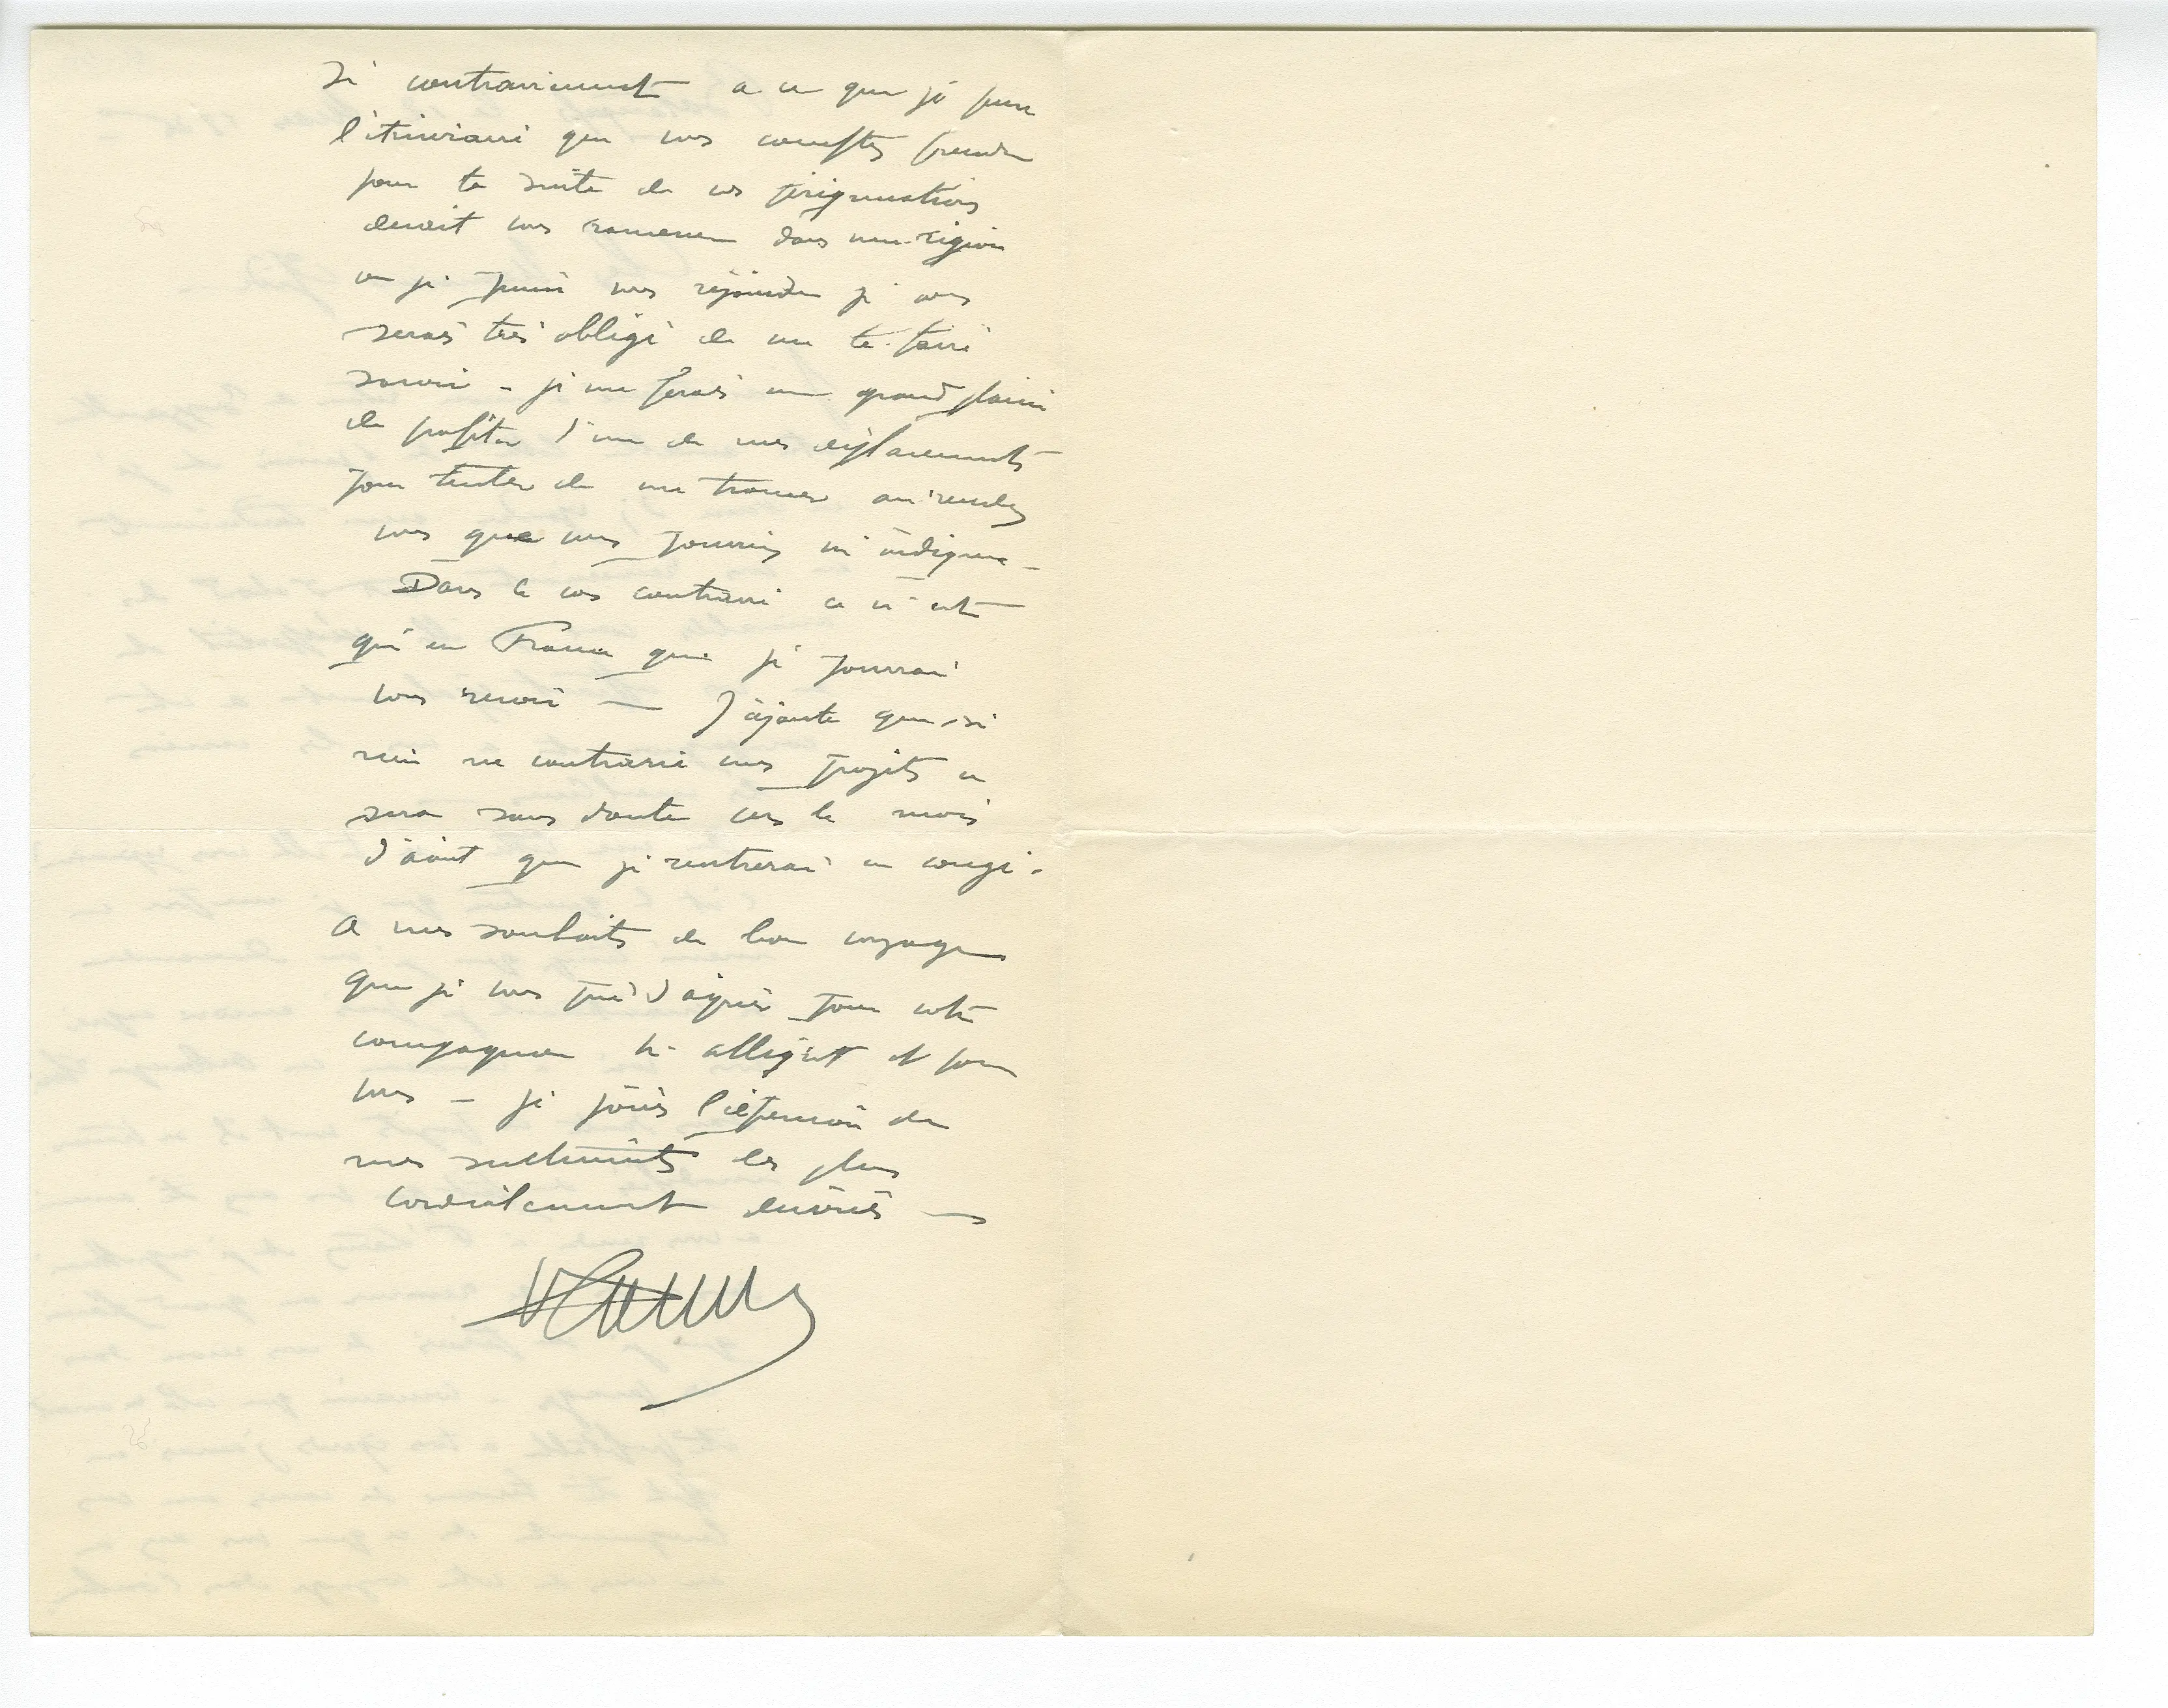 Si contrairement a ce que je pense
l'itineraire que vous comptez prendre
pour la suite de vos peregrinations
devait vous ramener dans une region
ou je puisse vous rejoindre je vous
serais très obligé de me le faire
savoir - je me ferais un grand plaisir
de profiter d'un de mes déplacements
pour tenter de me trouver au rendez
vous que vous pourriez m'indiquer -
Dans le cas contraire ce n'est
qu'en France que je pourrai
vous revoir — J'ajoute que si
rien ne contrarie mes projets ce
sera sans doute vers le mois
d'août que je rentrerai en congé.
A mes souhaits de bon voyage
que je vous prie d'agréer pour votre
compagnon Mr allegret et pour
vous - je joins l'expression de
mes sentiments les plus
cordialement dévoués —